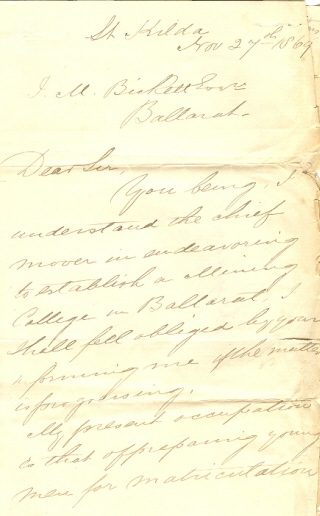 St Kilda
Nov 27th 1869
J. M. Bickett Esqre
Ballarat.
Dear Sir,
You being, I
understand the chief
mover in endeavoring
to establish a Mining
College in Ballarat, I
shall fell obliged by your
informing me if the matter
is progressing.
My present occupation
is that of preparing young
men for matriculation